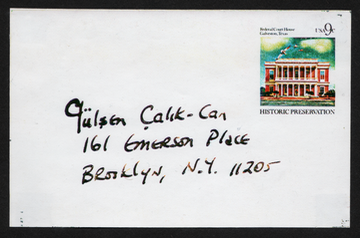 Federal Court House
Galveston, Texas
USA 9c
HISTORIC PRESERVATION
Gülsen Çalik-Can
161 Emerson Place
Brooklyn, N.Y. 11205